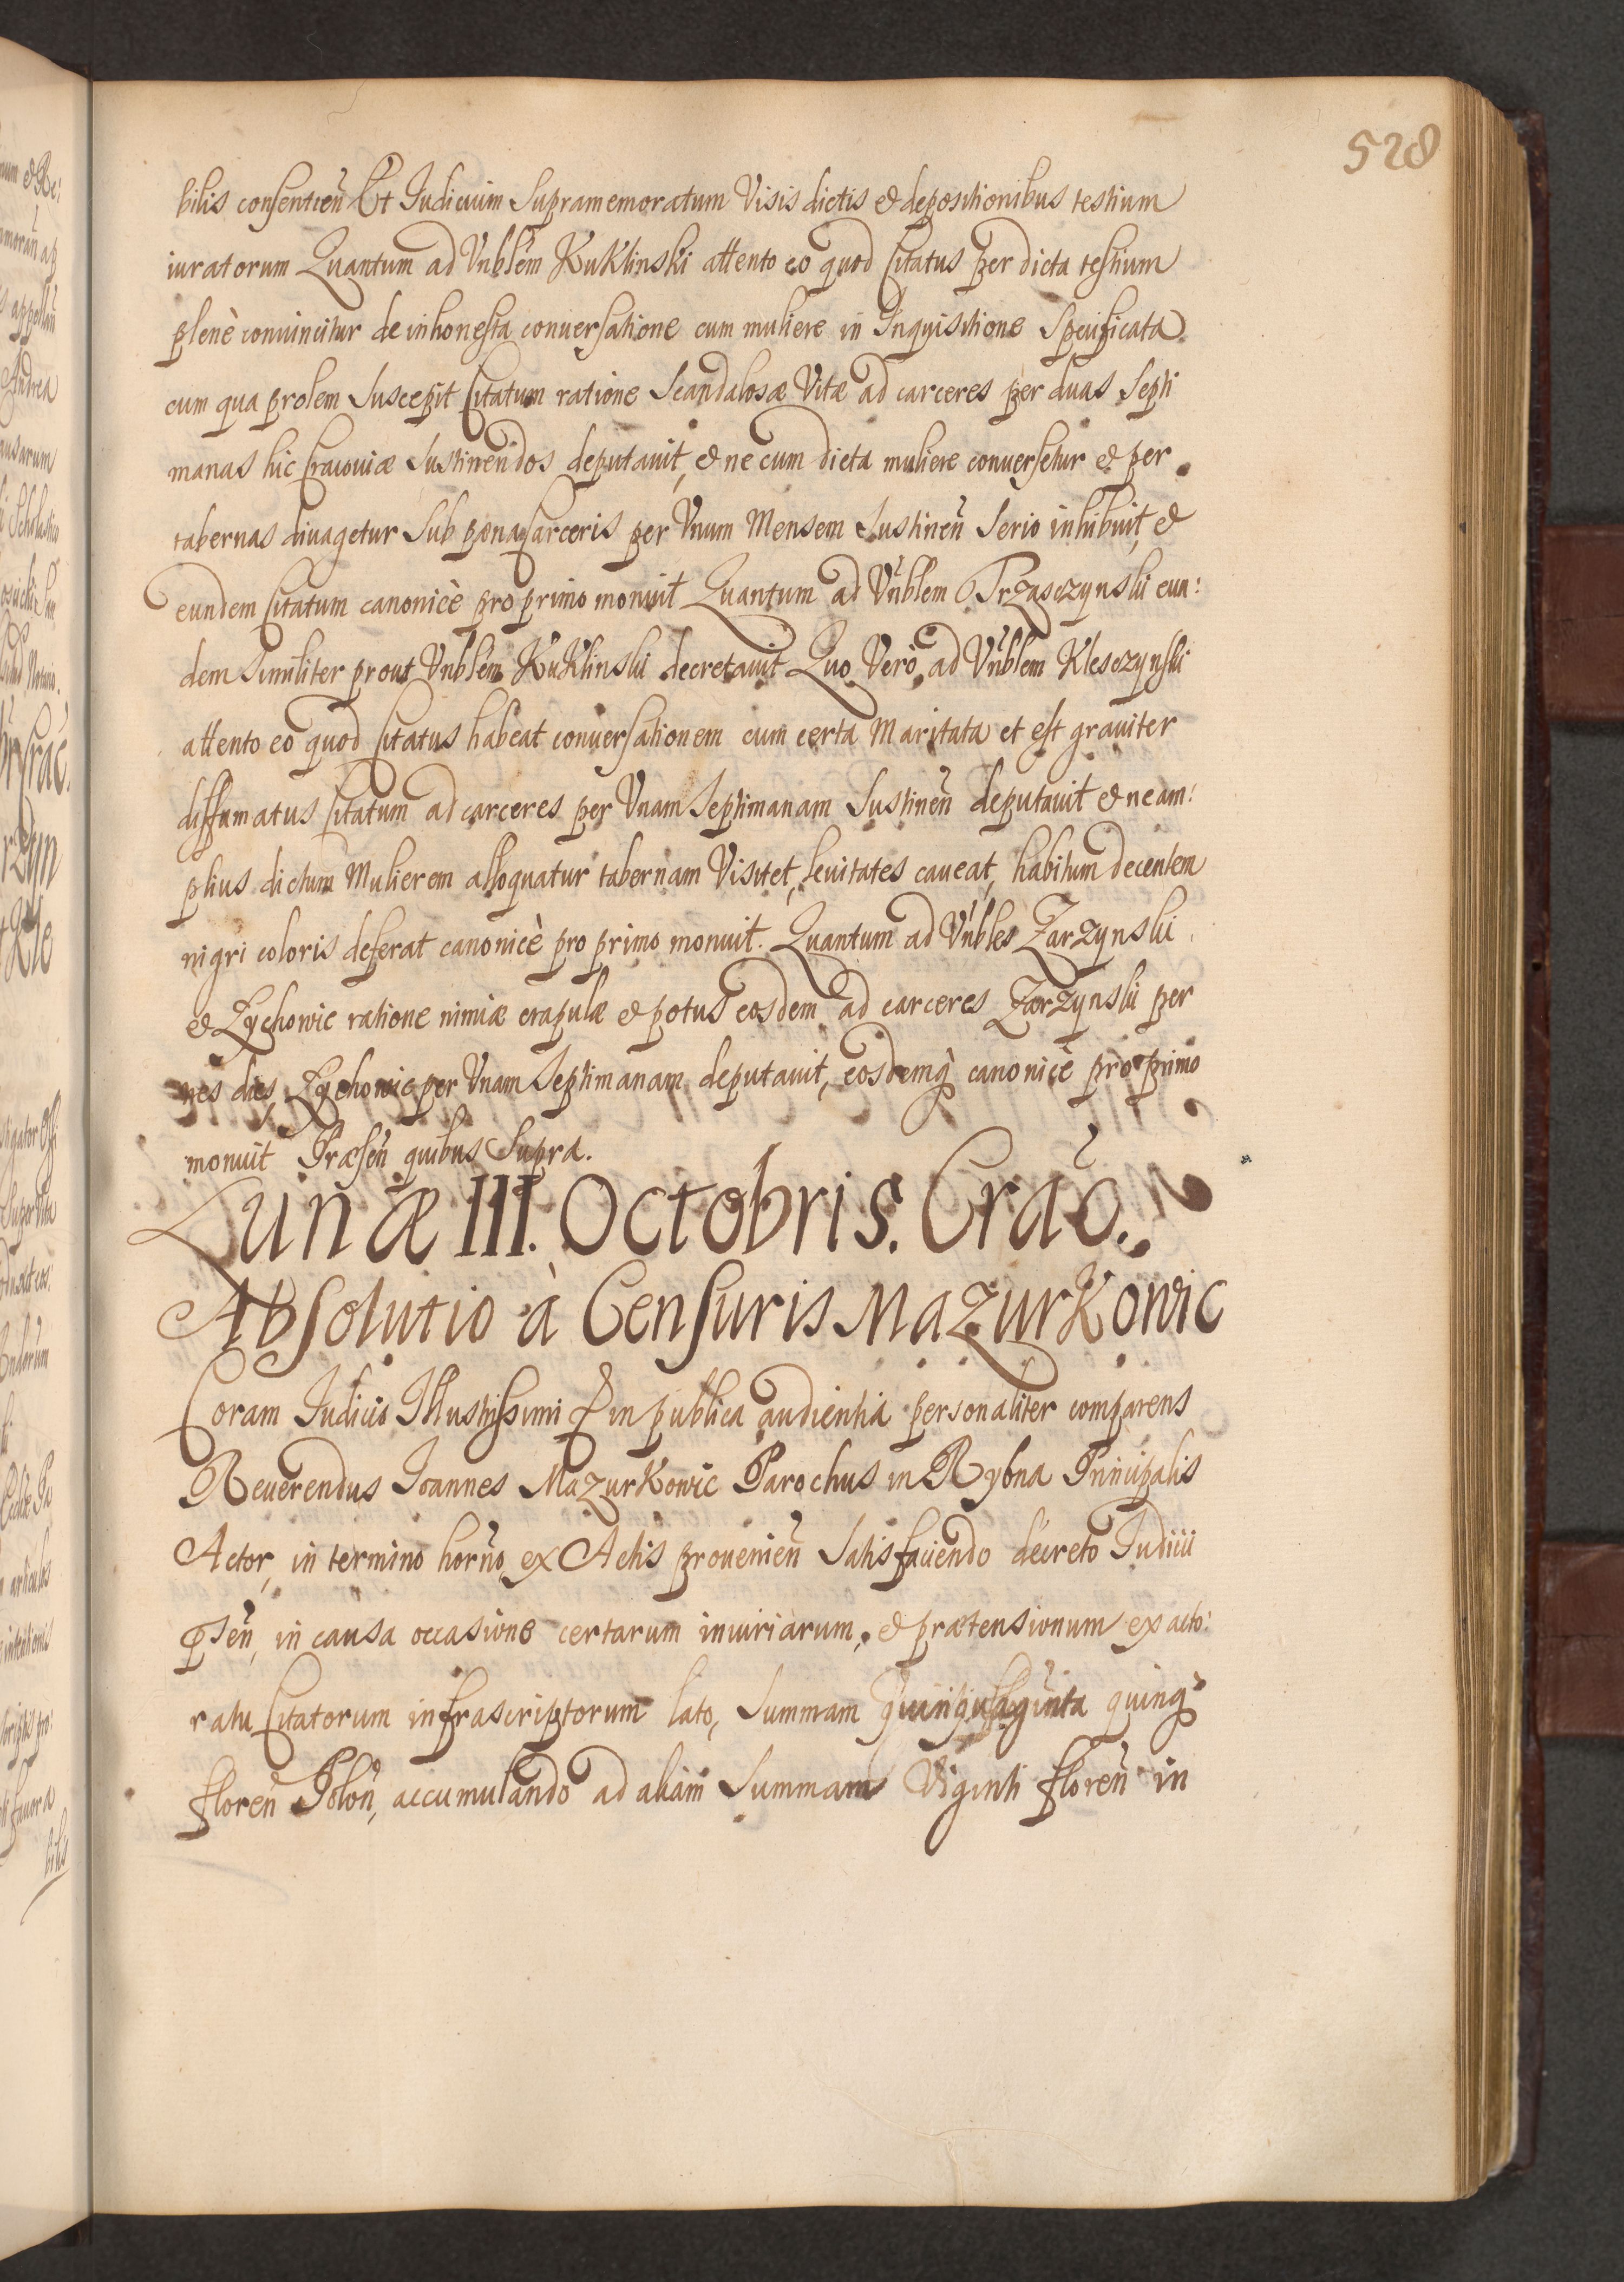 528
bilis consentien̄ Et Iudicium Supramemoratum Visis dictis & depositionibus testium
iuratorum Quantum ad Vnblem KuKlinski attento eo quod Citatus per dicta testium
plenè conuincitur de inhonesta conuersatione cum muliere in Inquisitione Specificata
cum qua prolem Suscepit Citatum ratione Scandalosæ Vitæ ad carceres per duas Septi
manas hic Cracouiæ Sustinendos deputauit, & ne cum dicta muliere conuersetur & per
tabernas diuagetur Sub pœna Carceris per Vnum Mensem Sustinen̄ Serio inhibuit, &
eundem Citatum canonicè pro primo monuit Quantum ad Vnblem Trzasczynski eun:
dem Similiter prout Vnblem KuKlinski decretauit Quo Verò ad Vnblem Klesczynski
attento eo quod Citatus habeat conuersationem cum certa Maritata et est grauiter
diffamatus Citatum ad carceres per Vnam Septimanam Sustinen̄ deputauit & ne am:
plius dictam Mulierem alloquatur tabernam Visitet, leuitates caueat, habitum decentem
nigri coloris deferat canonicè pro primo monuit. Quantum ad Vnbles Zarzynski
& Zychowic ratione nimiæ crapulæ & potus eosdem ad carceres Zarzynski per
nes dies, Zychowic per Vnam Septimanam deputauit, eosdemq̀ canonicè pro primo
monuit Præsen̄ quibus Supra.
Lunæ III. Octobris. Crac̄.
Absolutio à Censuris MazurKowic
Coram Iudicio Illustrissimi in publica audientia personaliter comparens
Reuerendus Ioannes MazurKowic Parochus in Rybna Principalis
Actor, in termino horn̄o, ex Actis prouenien̄ Satisfaciendo decreto Iudicii
p̄sen̄, in causa occasione certarum iniuriarum, & prætensionum ex acto:
ratu Citatorum infrascriptorum lato, Summam quinquaginta quinq̀
floren̄ Polon̄, accumulando ad aliam Summam Viginti floren̄ in